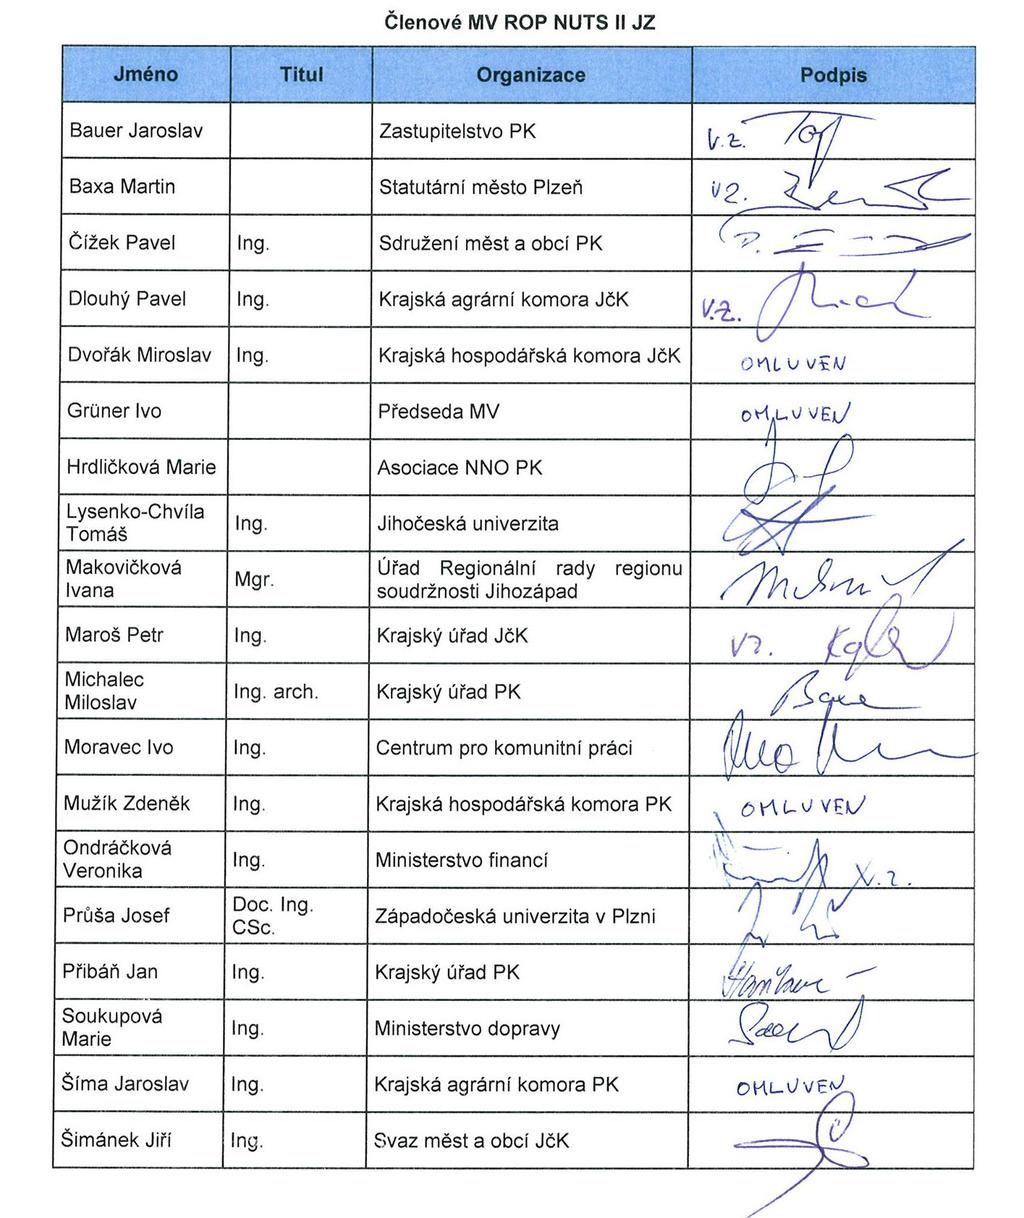 Členové MV ROP NUTS II JZ
Jméno Titul Organizace Podpis
Bauer Jaroslav Zastupitelstvo PK v.z.
Baxa Martin Statutární město Plzeň vz.
Čížek Pavel Ing. Sdružení měst a obcí PK
Dlouhý Pavel Ing. Krajská agrární komora JčK v.z.
Dvořák Miroslav Ing. Krajská hospodářská komora JčK OMLUVEN
Grüner Ivo Předseda MV OMLUVEN
Hrdličková Marie Asociace NNO PK
Lysenko-Chvíla
Tomáš Ing. Jihočeská univerzita
Makovičková
Ivana Mgr. Úřad Regionální rady regionu
soudržnosti Jihozápad
Maroš Petr Ing. Krajský úřad JčK vz.
Michalec
Miloslav Ing. arch. Krajský úřad PK
Moravec Ivo Ing. Centrum pro komunitní práci
Mužík Zdeněk Ing. Krajská hospodářská komora PK OMLUVEN
Ondráčková
Veronika Ing. Ministerstvo financí v.z.
Průša Josef Doc. Ing.
CSc. Západočeská univerzita v Plzni
Přibáň Jan Ing. Krajský úřad PK
Soukupová
Marie Ing. Ministerstvo dopravy
Šíma Jaroslav Ing. Krajská agrární komora PK OMLUVEN
Šimánek Jiří Ing. Svaz měst a obcí JčK